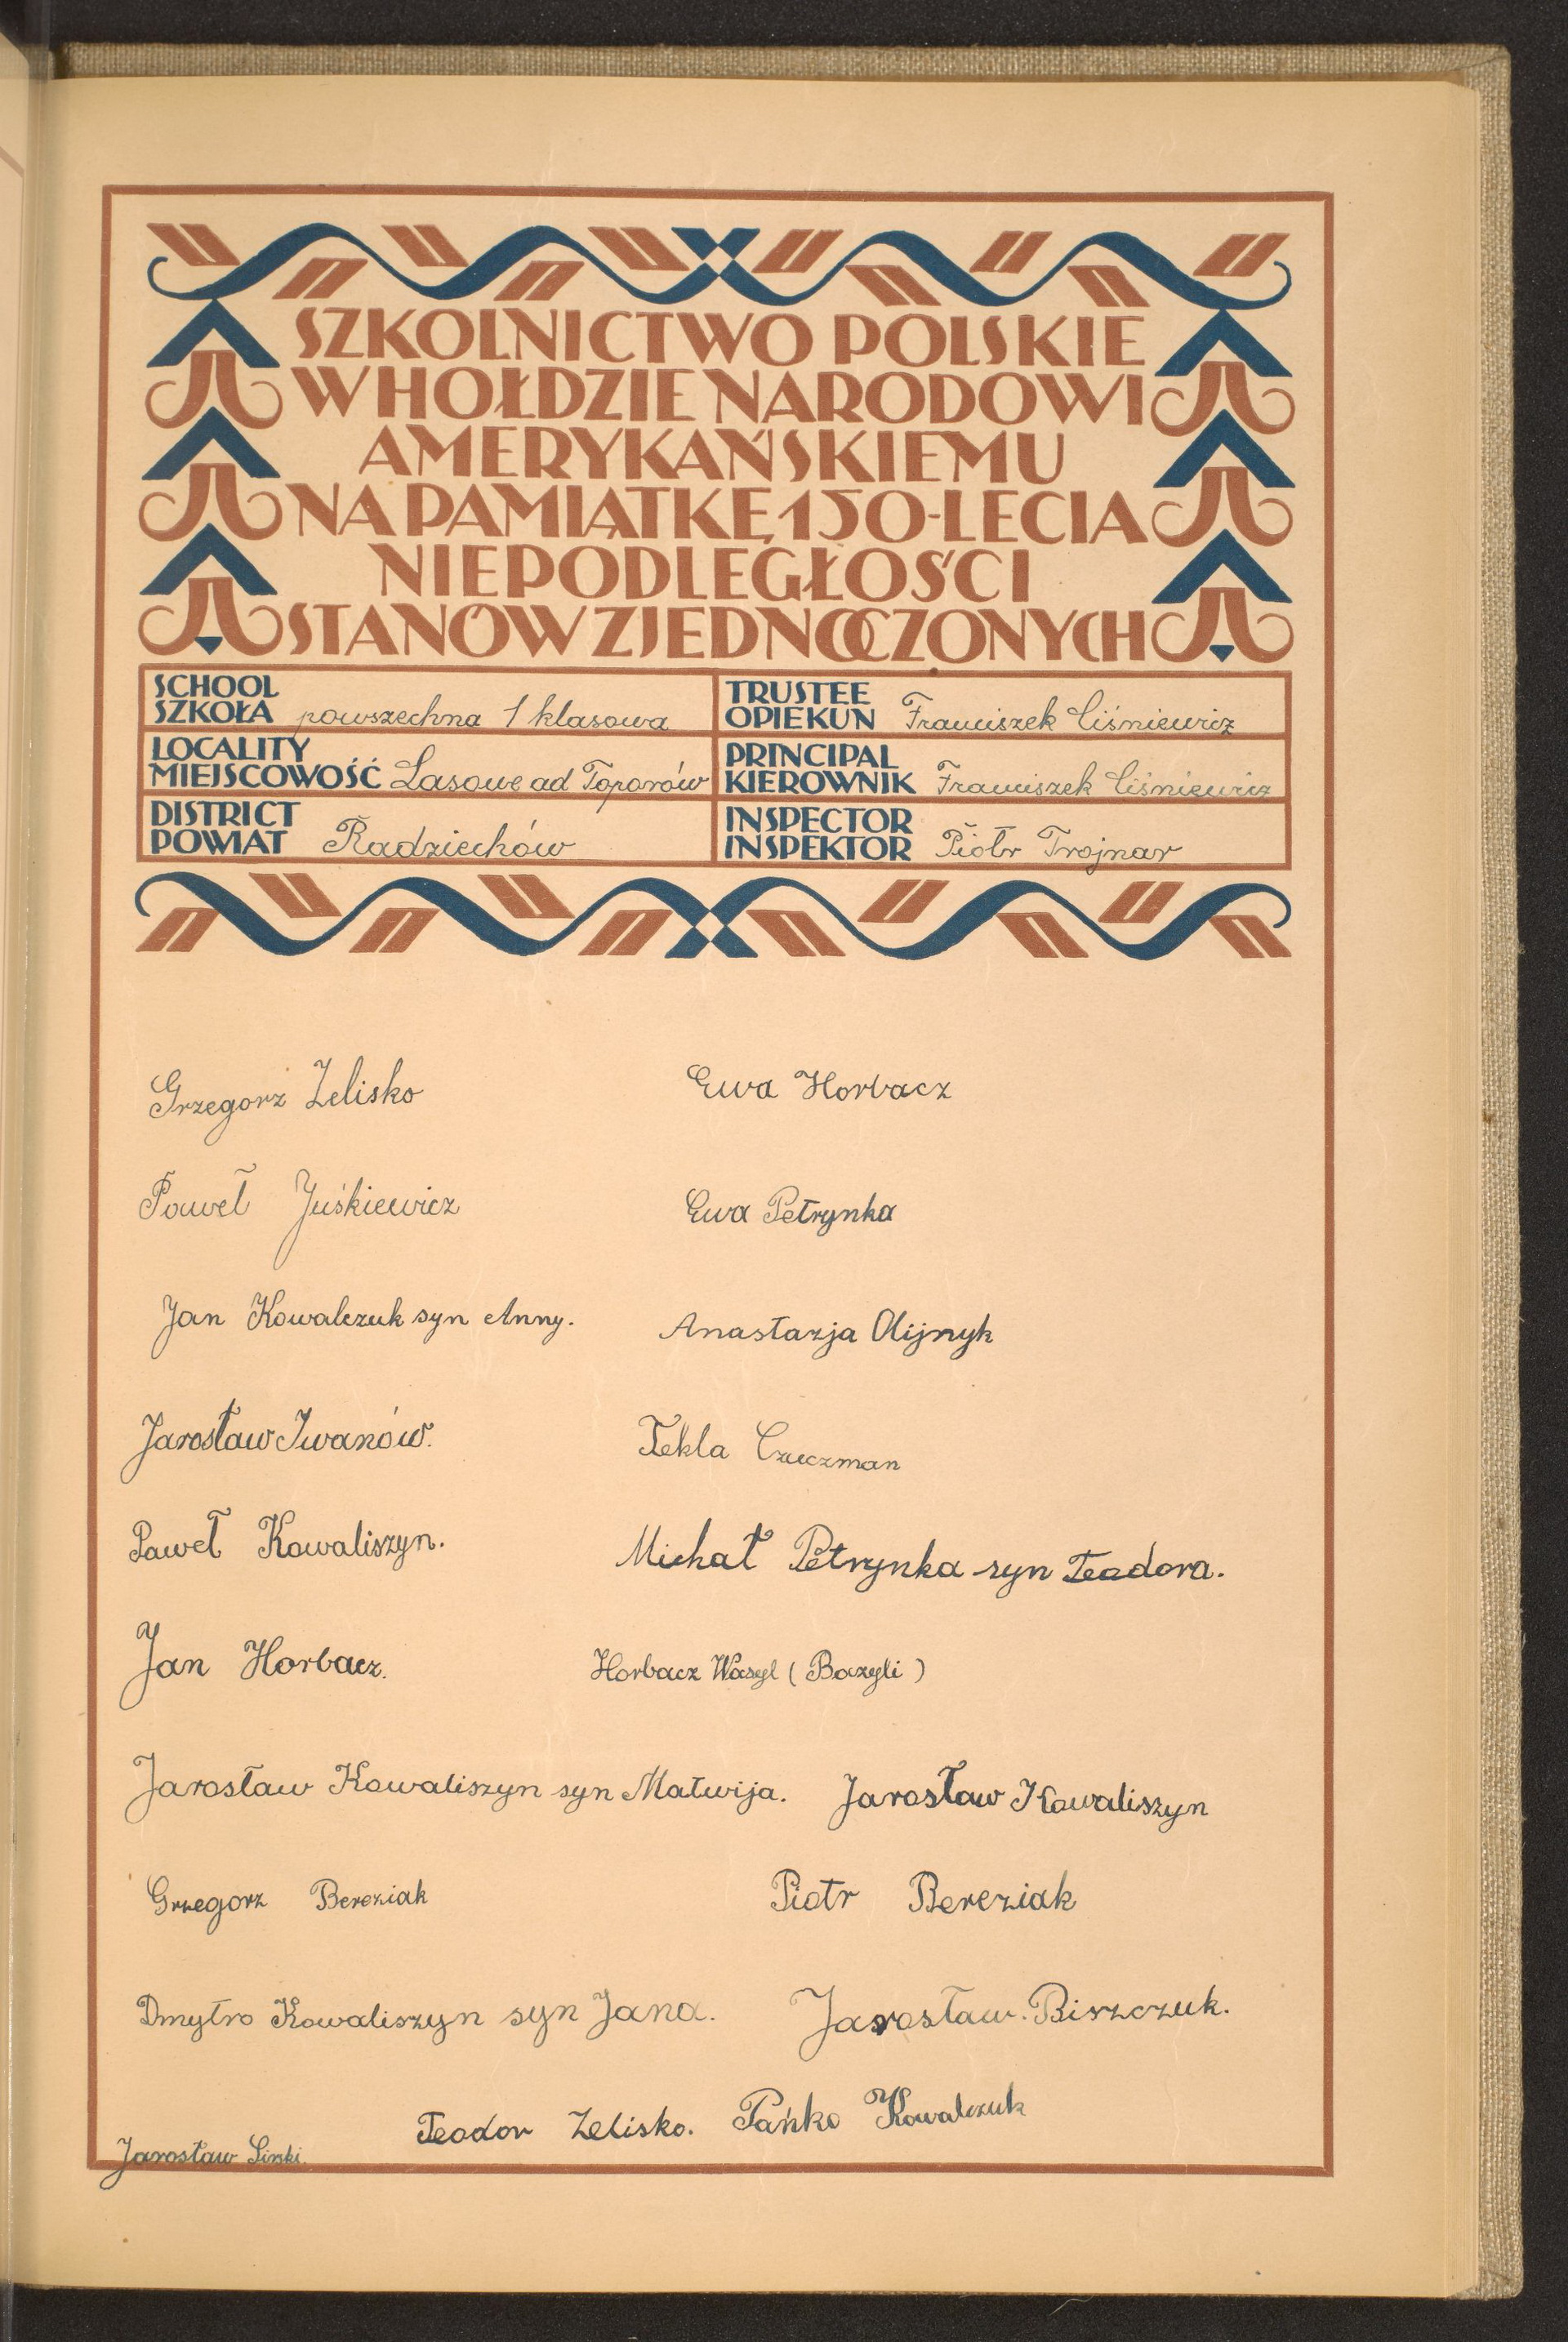 SZKOLNICTWO POLSKIE
W HOŁDZIE NARODOWI
AMERYKAŃSKIEMU
NA PAMIĄTKĘ 150-LECIA
NIEPODLEGŁOŚCI
STANÓW ZJEDNOCZONYCH
SCHOOL
SZKOŁA powszechna 1 klasowa
TRUSTEE
OPIEKUN Franciszek Liśniewicz
LOCALITY
MIEJSCOWOŚĆ Lasowe ad Toporów
PRINCIPAL
KIEROWNIK Franciszek Liśniewicz
DISTRICT
POWIAT Radziechów
INSPECTOR
INSPEKTOR Piotr Trojnar
Grzegorz Zelisko
Ewa Horbacz
Paweł Juśkiewicz
Ewa Petrynka
Jan Kowalczuk syn Anny.
Anastazja Olijnyk
Jarosław Iwanów.
Tekla Czuczman
Paweł Kowaliszyn.
Michał Petrynka syn Teodora.
Jan Horbacz.
Horbacz Wasyl (Bazyli)
Jarosław Kowaliszyn syn Matwija.
Jarosław Kowaliszyn
Grzegorz Bereziak
Piotr Bereziak
Dmytro Kowaliszyn syn Jana.
Jarosław. Biszczuk.
Teodor Zelisko.
Pańko Kowalczuk
Jarosław